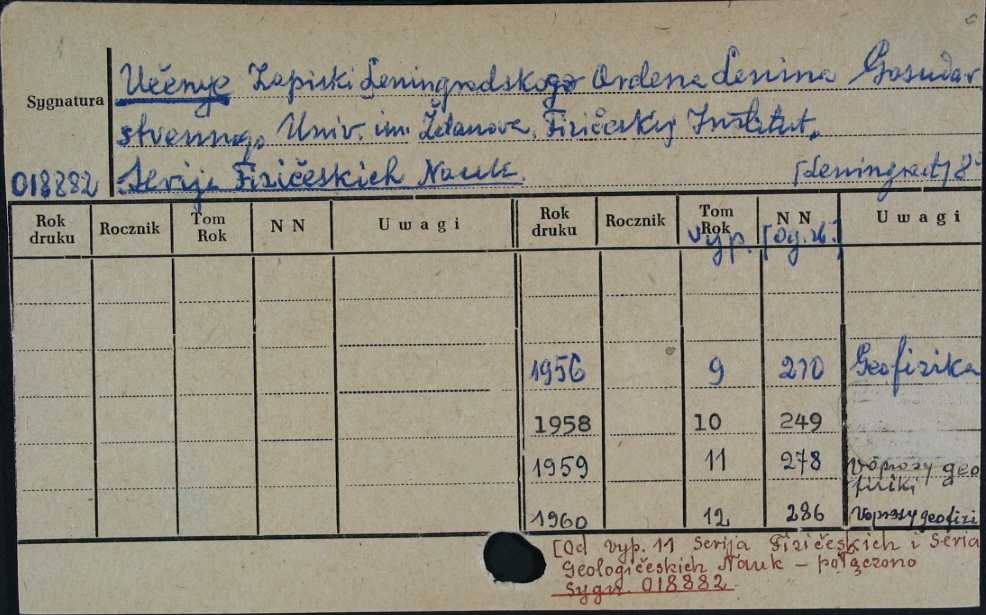 Učenye Zapiski Leningradskogo Ordena Lenina Gosudar
Sygnatura
stvennogo Univ. im. Ždanova, Fizičeskij Institut,
018882 Serija Fizičeskich Nauk. [Leningrad] 8°
Rok druku Rocznik Tom Rok N N Uwagi Rok druku Rocznik Tom Rok N N Uwagi
vyp. [og. zb.]
1956 9 210 Geofizika
1958 10 249
1959 11 278 Voprosy geo
fiziki
1960 12 286 Voprosy geofizi
[Od vyp. 11 Serija Fizičeskich i Seria
Geologičeskich Nauk – połączono
Sygn. 018882